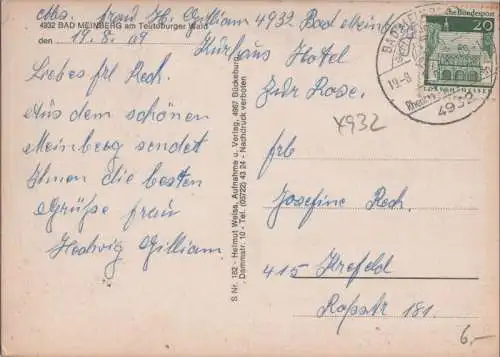 Abs. frau H. Gilliam 4932 Bad Meinberg
4932 BAD MEINBERG am Teutoburger Wald
Kurhaus Hotel
den 19.8.69
zur Rose.
Liebes frl Rech.
Aus dem schönen
Meinberg sendet
Ihnen die besten
Grüße frau
Hedwig Gilliam
S Nr. 182 - Helmut Weiss, Aufnahme u. Verlag, 4967 Bückeburg
Dammstr. 10 - Tel. (05722) 43 24 - Nachdruck verboten
Deutsche Bundespost
20
LORSCH/HESSEN
19.-8.
4932
4932
frl.
Josefine Rech.
415 Krefeld
Roßstr 181.
6,-